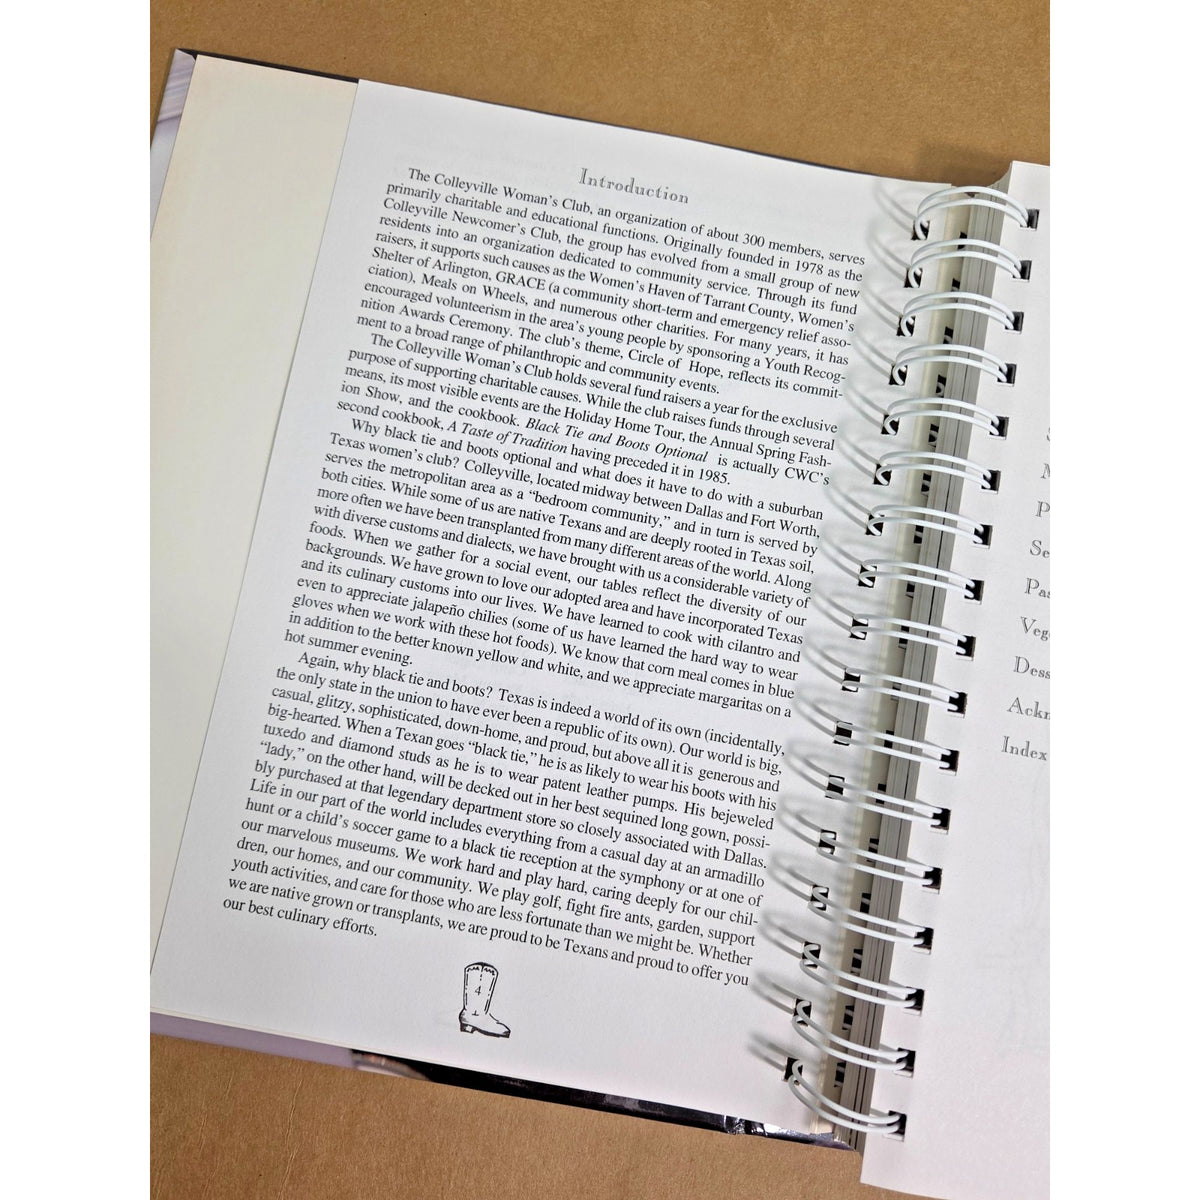 Introduction
The Colleyville Woman's Club, an organization of about 300 members, serves
primarily charitable and educational functions. Originally founded in 1978 as the
Colleyville Newcomer's Club, the group has evolved from a small group of new
residents into an organization dedicated to community service. Through its fund
raisers, it supports such causes as the Women's Haven of Tarrant County, Women's
Shelter of Arlington, GRACE (a community short-term and emergency relief asso-
ciation), Meals on Wheels, and numerous other charities. For many years, it has
encouraged volunteerism in the area's young people by sponsoring a Youth Recog-
nition Awards Ceremony. The club's theme, Circle of Hope, reflects its commit-
ment to a broad range of philanthropic and community events.
The Colleyville Woman's Club holds several fund raisers a year for the exclusive
purpose of supporting charitable causes. While the club raises funds through several
means, its most visible events are the Holiday Home Tour, the Annual Spring Fash-
ion Show, and the cookbook. Black Tie and Boots Optional is actually CWC's
second cookbook, A Taste of Tradition having preceded it in 1985.
Why black tie and boots optional and what does it have to do with a suburban
Texas women's club? Colleyville, located midway between Dallas and Fort Worth,
serves the metropolitan area as a "bedroom community," and in turn is served by
both cities. While some of us are native Texans and are deeply rooted in Texas soil,
more often we have been transplanted from many different areas of the world. Along
with diverse customs and dialects, we have brought with us a considerable variety of
foods. When we gather for a social event, our tables reflect the diversity of our
backgrounds. We have grown to love our adopted area and have incorporated Texas
and its culinary customs into our lives. We have learned to cook with cilantro and
even to appreciate jalapeño chilies (some of us have learned the hard way to wear
gloves when we work with these hot foods). We know that corn meal comes in blue
in addition to the better known yellow and white, and we appreciate margaritas on a
hot summer evening.
Again, why black tie and boots? Texas is indeed a world of its own (incidentally,
the only state in the union to have ever been a republic of its own). Our world is big,
casual, glitzy, sophisticated, down-home, and proud, but above all it is generous and
big-hearted. When a Texan goes "black tie," he is as likely to wear his boots with his
tuxedo and diamond studs as he is to wear patent leather pumps. His bejeweled
"lady," on the other hand, will be decked out in her best sequined long gown, possi-
bly purchased at that legendary department store so closely associated with Dallas.
Life in our part of the world includes everything from a casual day at an armadillo
hunt or a child's soccer game to a black tie reception at the symphony or at one of
our marvelous museums. We work hard and play hard, caring deeply for our chil-
dren, our homes, and our community. We play golf, fight fire ants, garden, support
youth activities, and care for those who are less fortunate than we might be. Whether
we are native grown or transplants, we are proud to be Texans and proud to offer you
our best culinary efforts.
4
Index